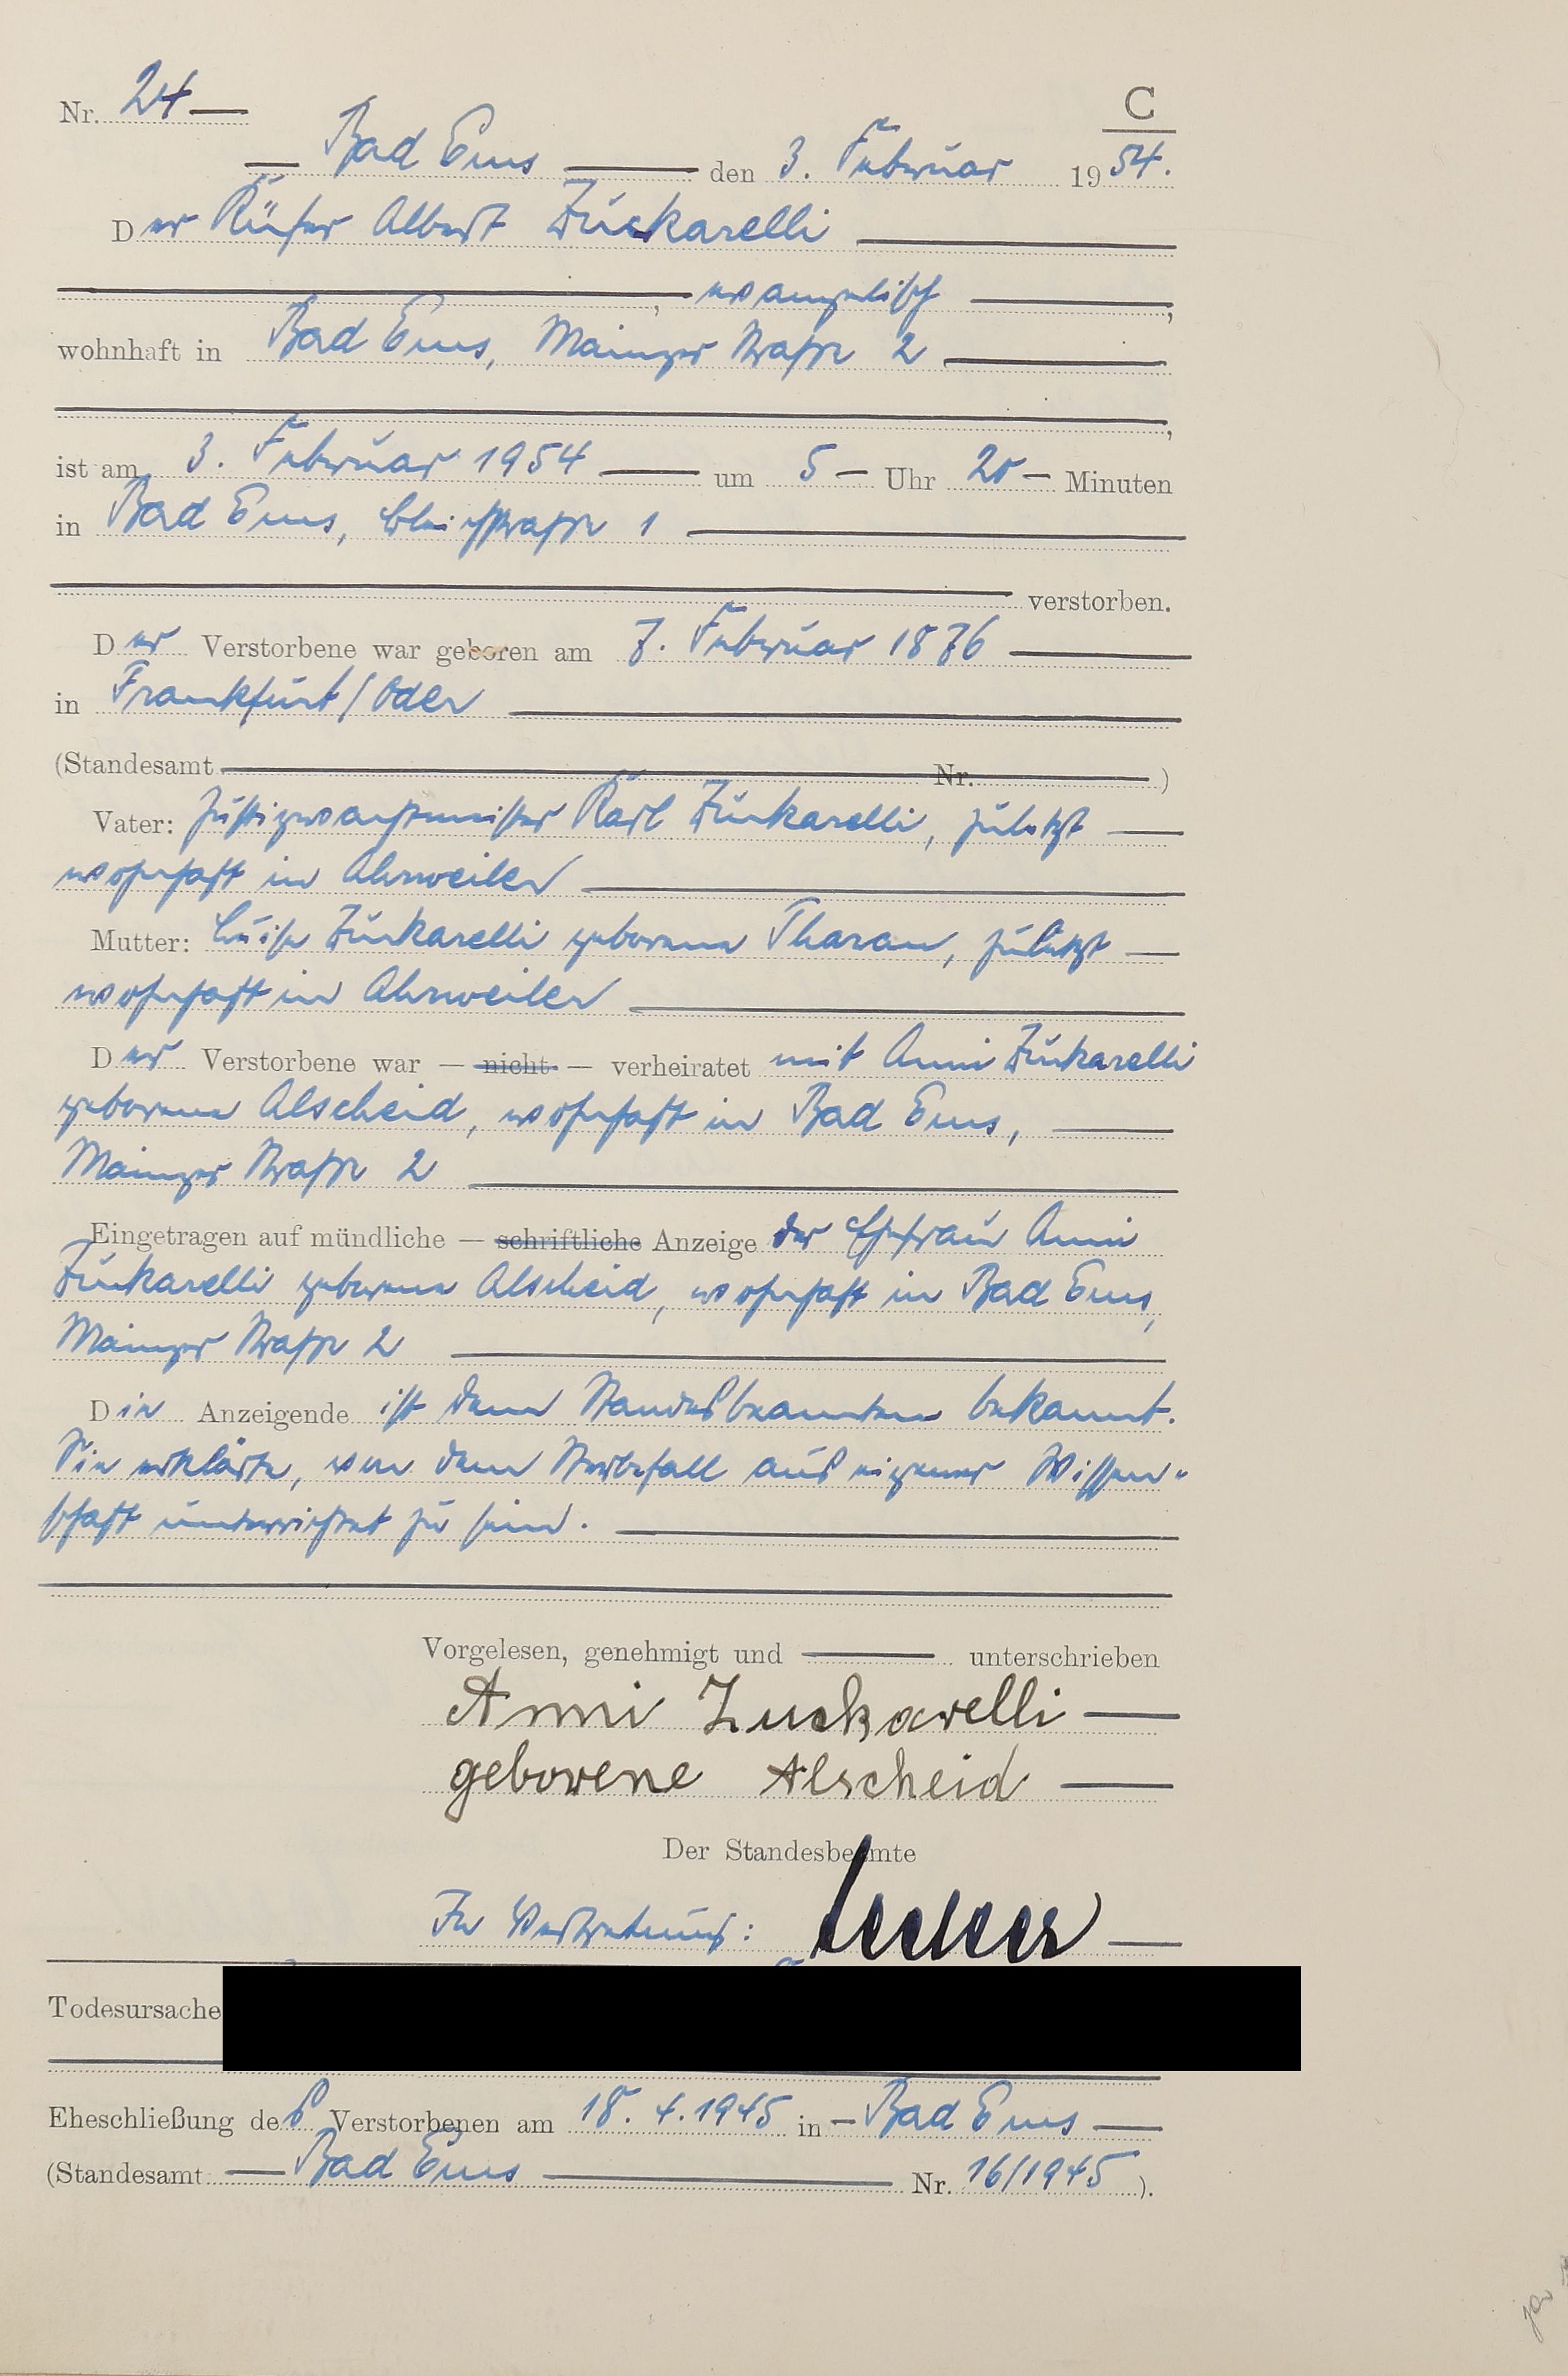 C
Nr. 24 —
— Bad Ems — den 3. Februar 1954.
Der Küfer Albert Zuckarelli —
—, evangelisch —,
wohnhaft in Bad Ems, Mainzer Strasse 2 —
—,
ist am 3. Februar 1954 — um 5 — Uhr 20 — Minuten
in Bad Ems, Bleichstrasse 1 —
— verstorben.
Der Verstorbene war geboren am 7. Februar 1876 —
in Frankfurt/Oder —
(Standesamt — Nr. — )
Vater: Justizwachtmeister Karl Zuckarelli, zuletzt —
wohnhaft in Ahrweiler —
Mutter: Luise Zuckarelli geborene Tharau, zuletzt —
wohnhaft in Ahrweiler —
Der Verstorbene war — nicht — verheiratet mit Anni Zuckarelli
geborene Alscheid, wohnhaft in Bad Ems, —
Mainzer Strasse 2 —
Eingetragen auf mündliche — schriftliche Anzeige der Ehefrau Anni
Zuckarelli geborene Alscheid, wohnhaft in Bad Ems,
Mainzer Strasse 2 —
Die Anzeigende ist dem Standesbeamten bekannt.
Sie erklärte, von dem Sterbefall aus eigener Wissen-
schaft unterrichtet zu sein. —
Vorgelesen, genehmigt und — unterschrieben
Anni Zuckarelli —
geborene Alscheid —
Der Standesbeamte
In Vertretung: —
Todesursache
Eheschließung des Verstorbenen am 18. 4. 1945 in — Bad Ems —
(Standesamt — Bad Ems — Nr. 16/1945 ).